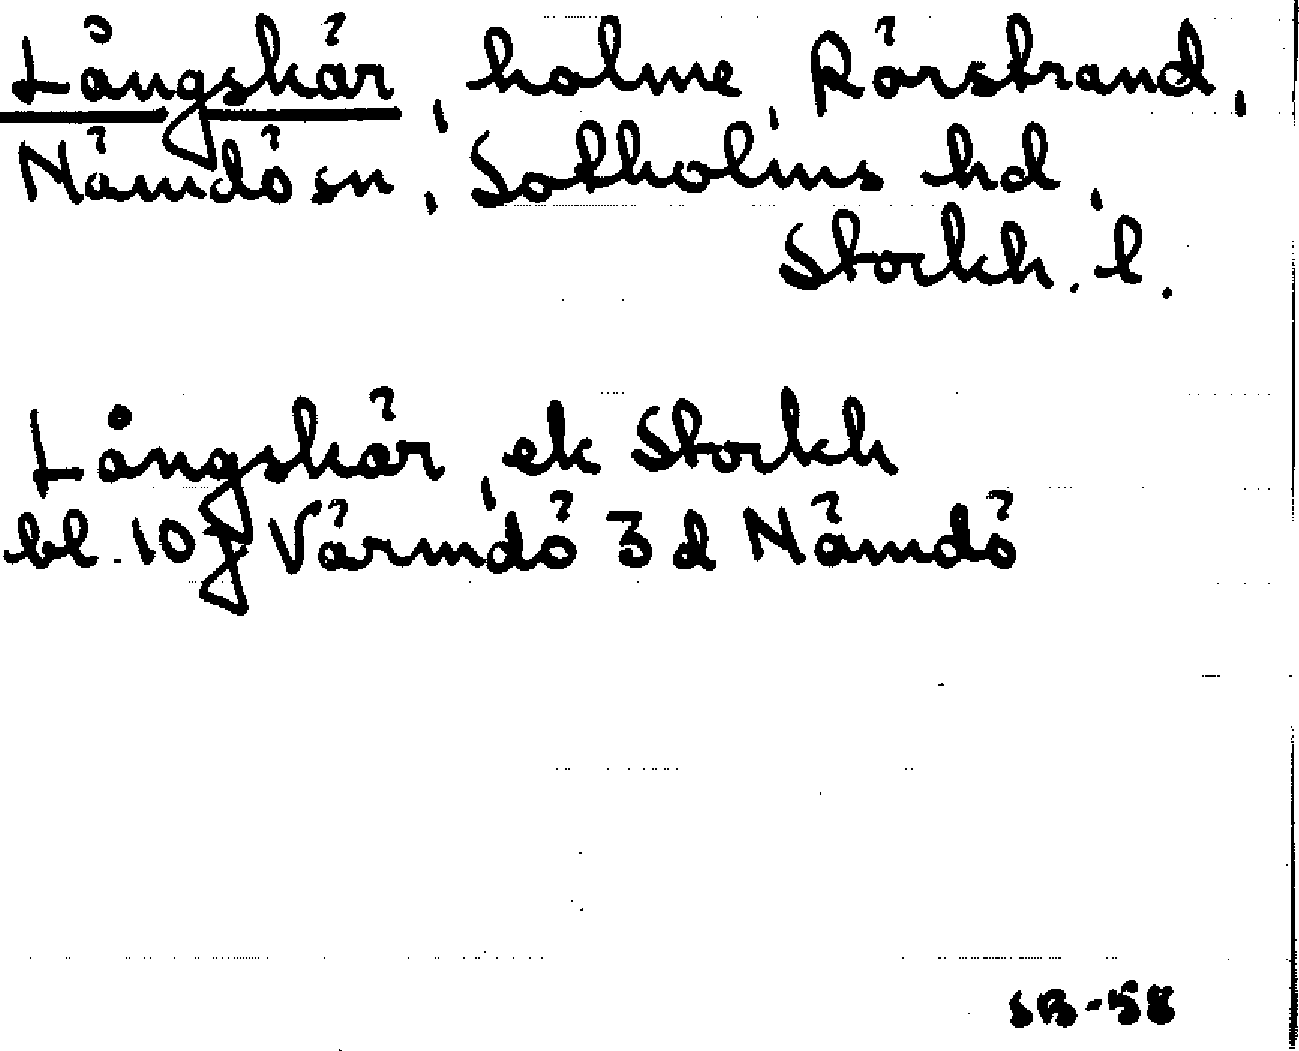 Långskär, holme, Rörstrand,
Nämdö sn, Sotholms hd,
Stockh. l.
Långskär, ek Stockh
bl. 10j Värmdö 3 d Nämdö
SB-58